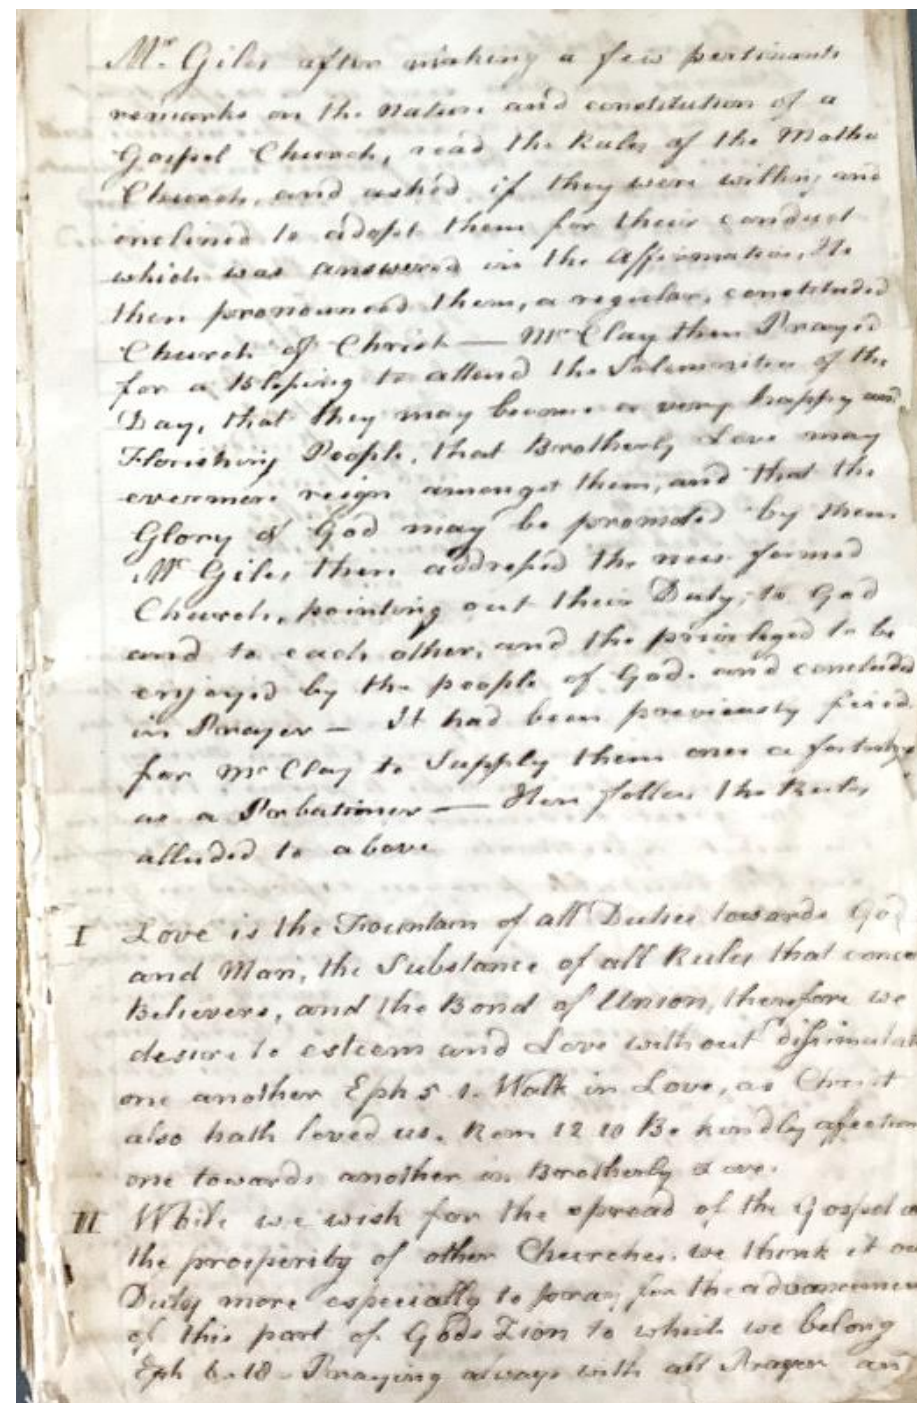 Mr. Giles after making a few pertinants
remarks on the Nature and constitution of a
Gospel Church, read the Rules of the Mother
Church, and asked if they were willing and
inclined to adopt them for their conduct
which was answered in the Affirmative, He
then pronounced them, a regular, constituded
Church of Christ — Mr Clay then Prayed
for a Blessing to attend the Solemnities of the
Day, that they may become a very happy and
Florishing People, that Brotherly Love may
evermore reign amongst them, and that the
Glory of God may be promoted by them
Mr Giles then addressed the new formed
Church, pointing out their Duty, to God
and to each other, and the privileged to be
enjoyed by the people of God. and concluded
in Prayer — It had been previously fixed
for Mr Clay to Supply them once a
as a Probationer — Here follow the Rules
alluded to above
I Love is the Fountain of all Duties towards God
and Man, the Substance of all Rules that conce
Believers, and the Bond of Union, therefore we
desire to esteem and Love without dissimulat
one another Eph 5 1. Walk in Love, as Christ
also hath loved us. Rom 12 10 Be kindly afection
one towards another in Brotherly Love.
II While we wish for the spread of the Gospel a
the prosperity of other Churches. we think it ou
Duty more especially to pray for the advanceme
of this part of Gods Zion to which we belong
Eph 6-18 - Praying always with all Prayer and